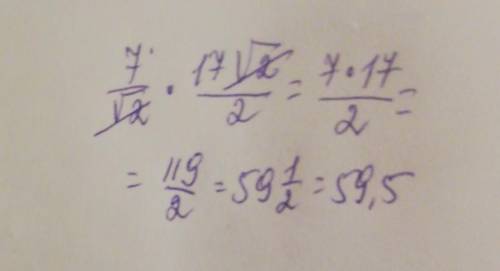 7/√2 · 17√2/2 = 7·17/2 =
= 119/2 = 59 1/2 = 59,5